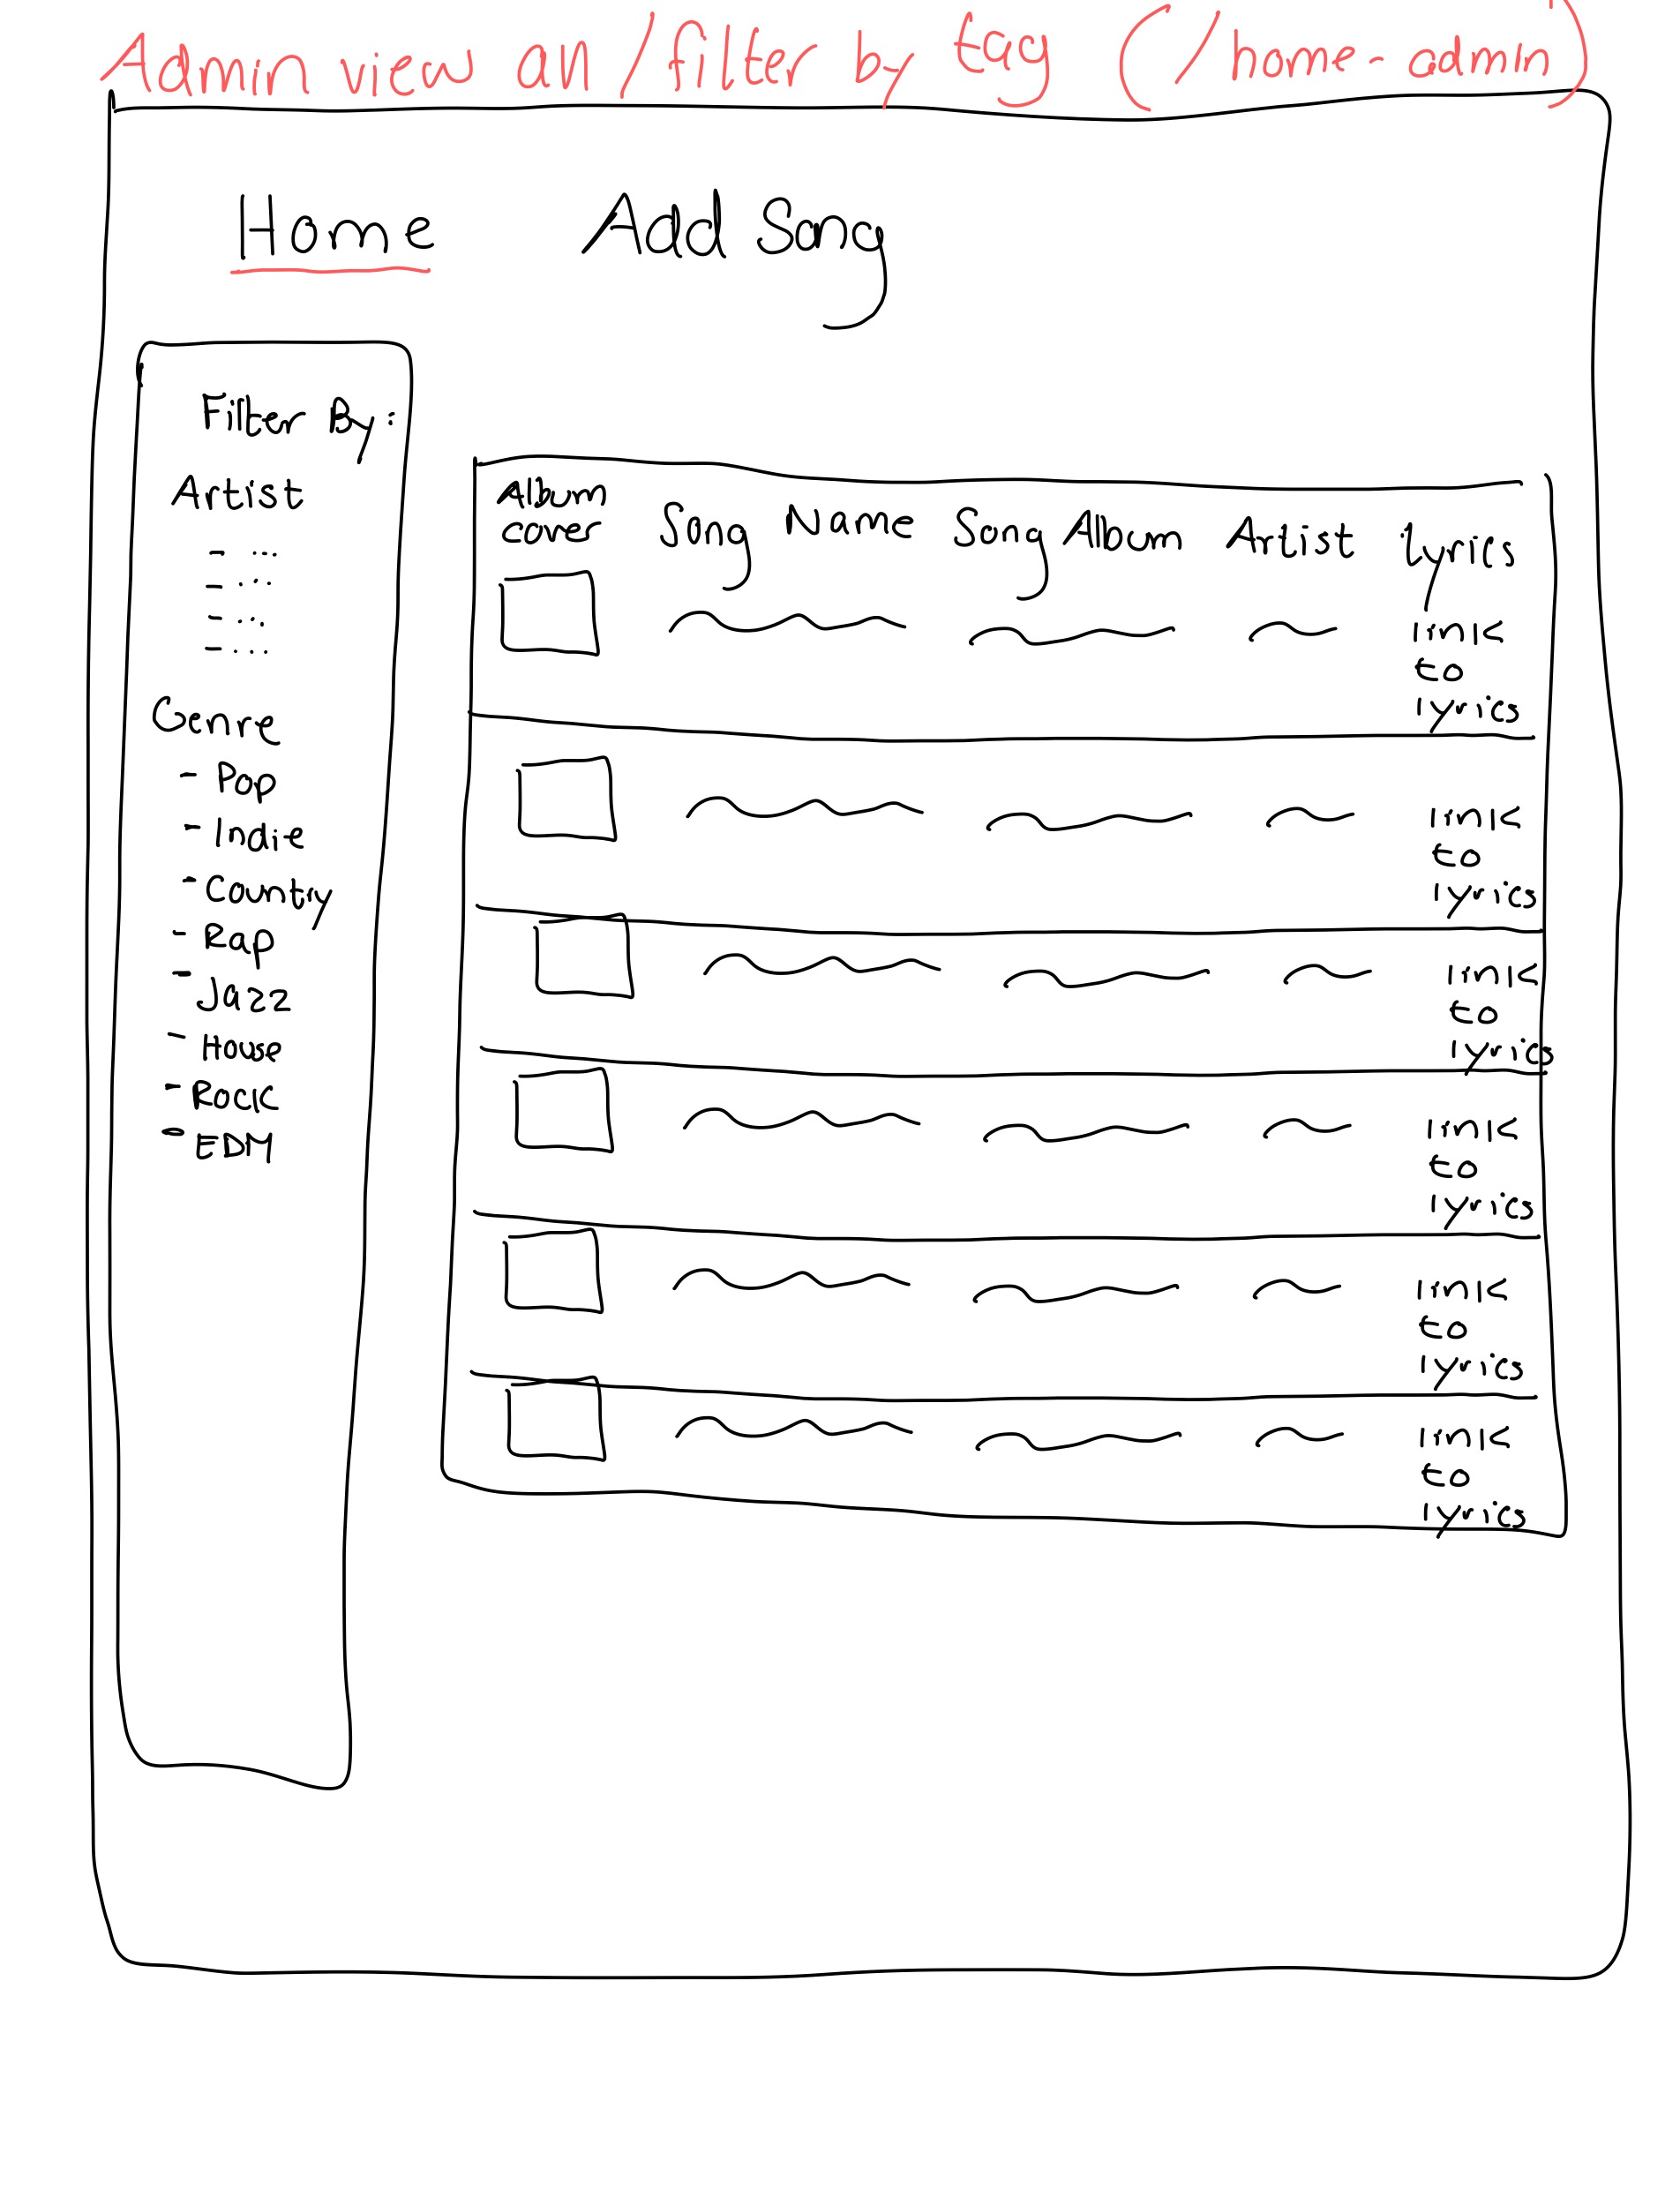 Admin view all/filter by tag (/home-admin)
Home Add Song
Filter By:
Artist
- ...
- ...
- ...
- ...
Genre
- Pop
- Indie
- County
- Rap
- Jazz
- House
- Rock
- EDM
Album
cover Song Name Song Album Artist lyrics
link
to
lyrics
link
to
lyrics
link
to
lyrics
link
to
lyrics
link
to
lyrics
link
to
lyrics